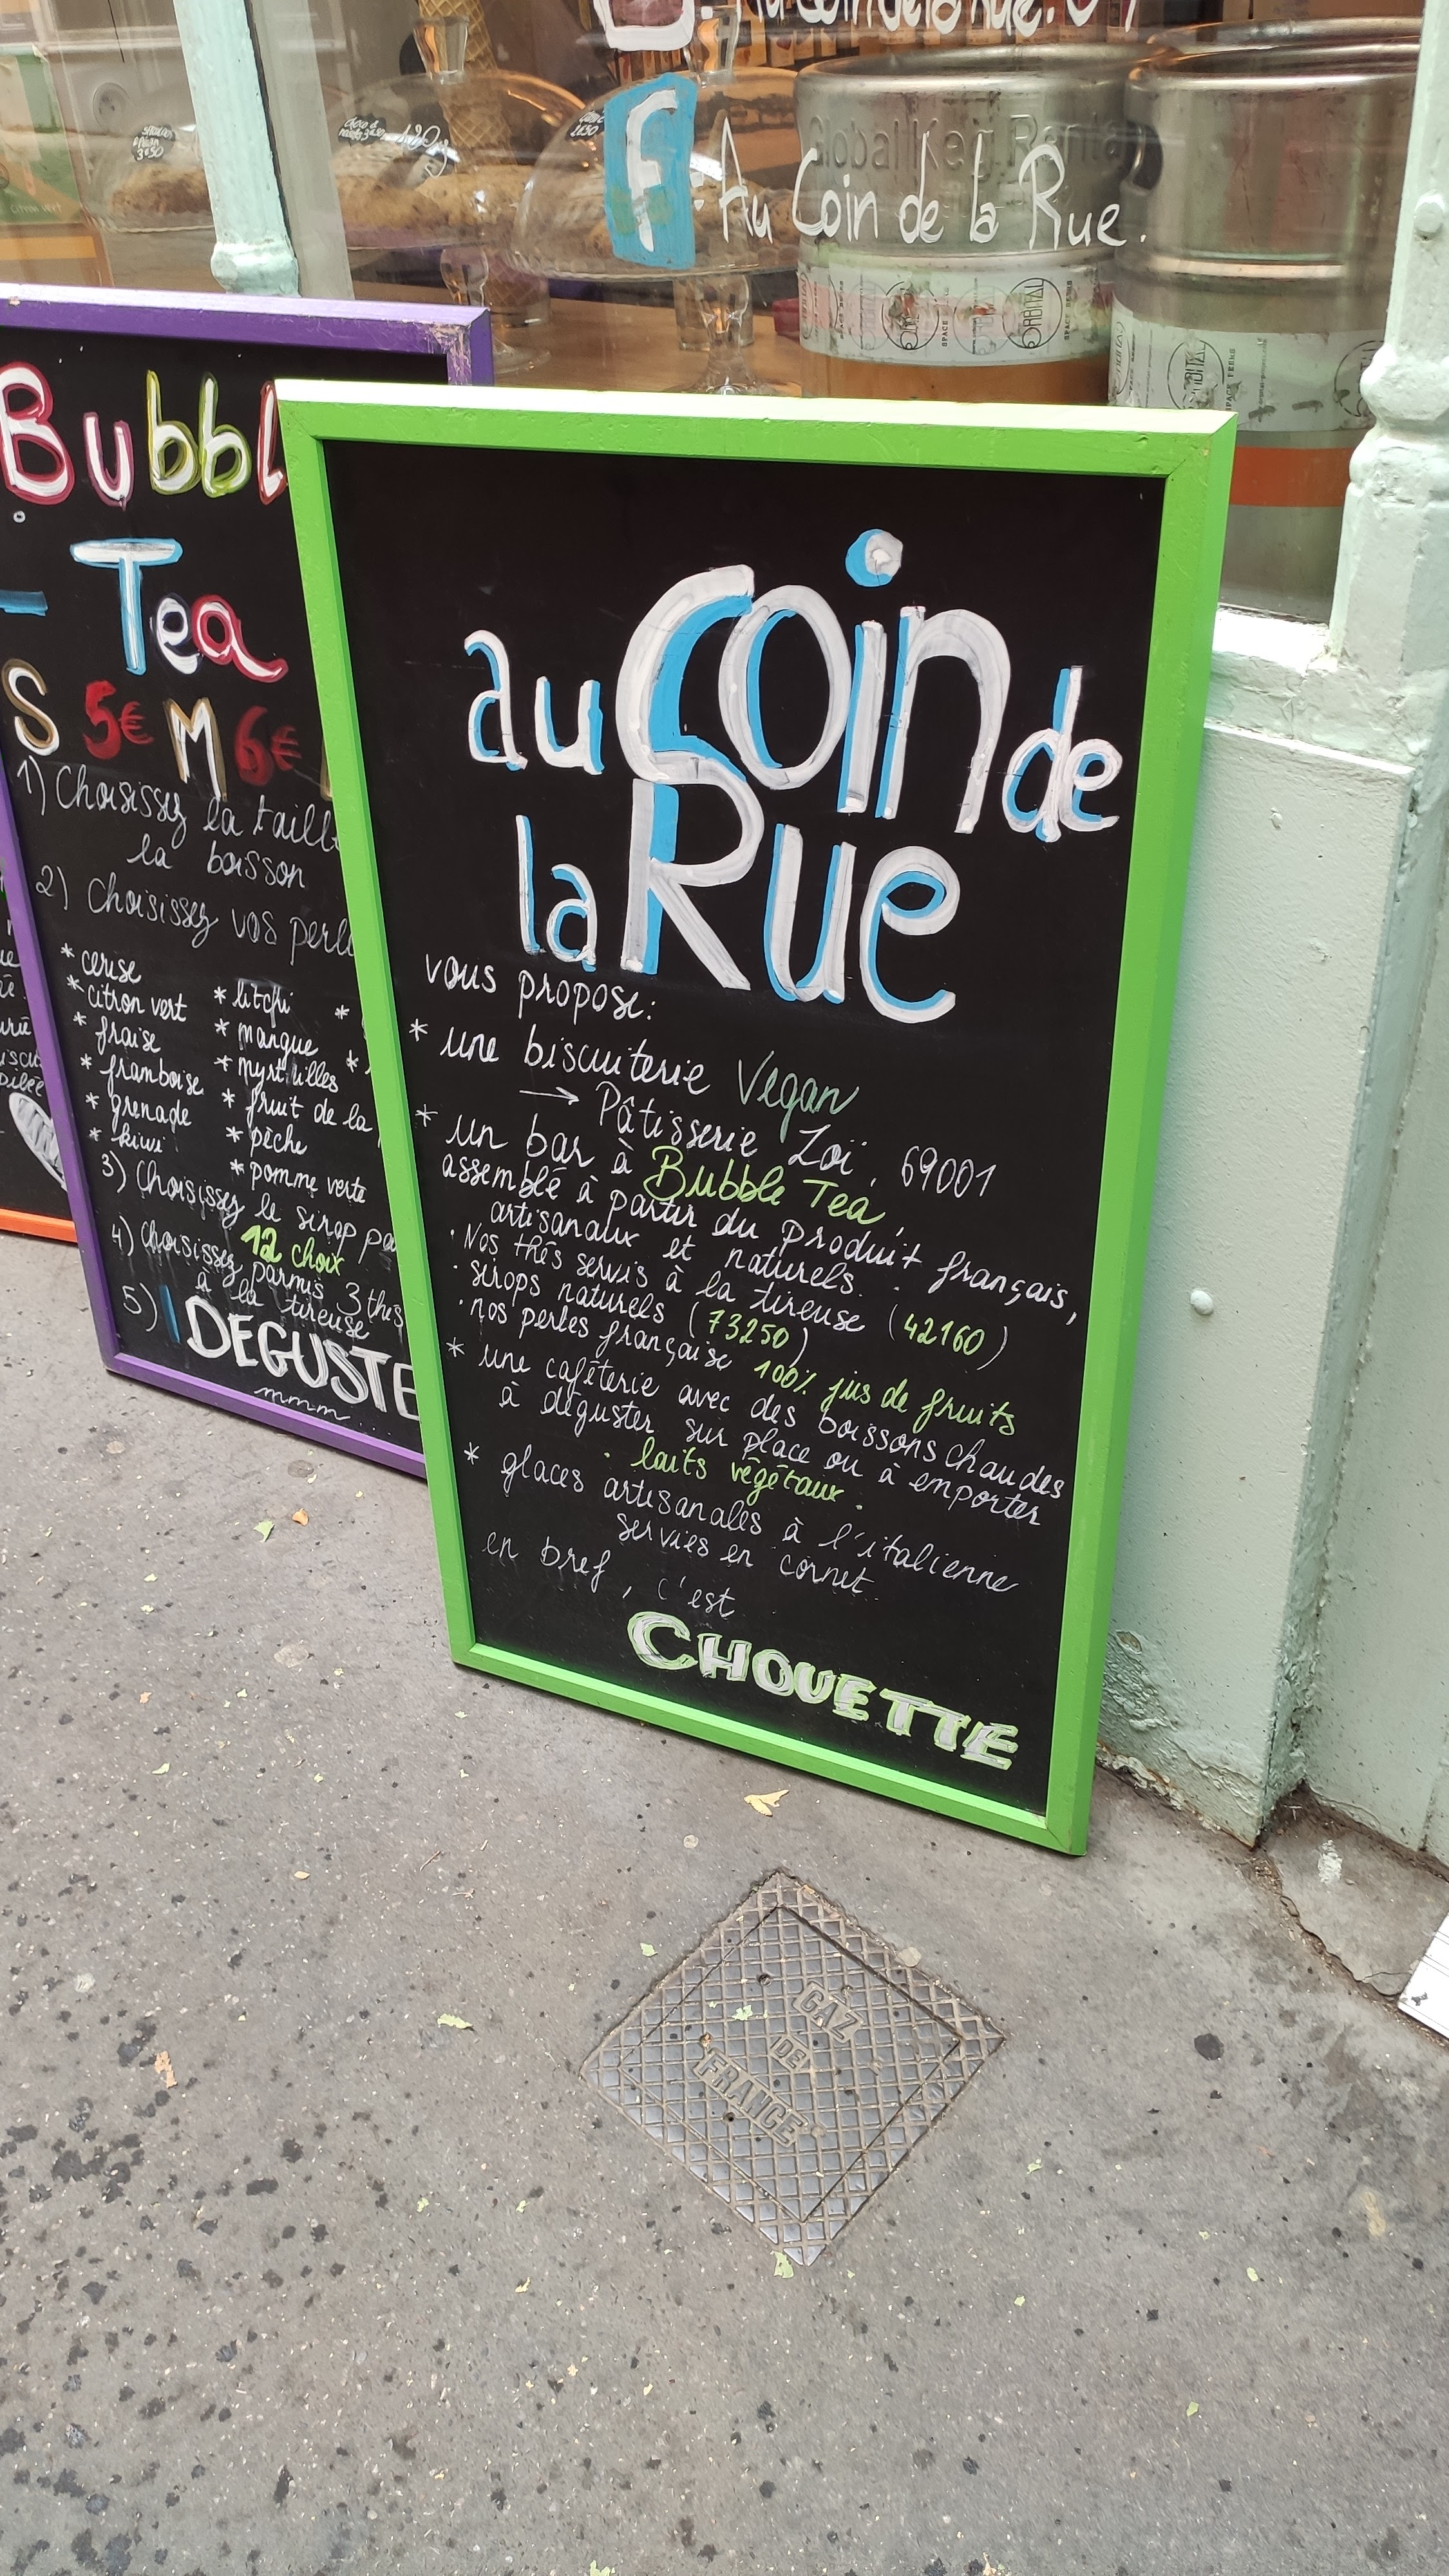 : Au Coin de la Rue.
F : Au Coin de la Rue.
Global Keg Renta
ORBITAL
SPACE
Bubbl
Tea
S 5€ M 6€
1) Choisissez la taill
la boisson
2) Choisissez vos perl
* cerise
* citron vert
* fraise
* framboise
* grenade
* kiwi
* litchi
* mangue
* myrtilles
* fruit de la
* pêche
* pomme verte
3) Choisissez le sirop pa
12 choix
4) Choisissez parmis 3 thés
à la tireuse
5) DEGUSTE
mmm
au Coin de
la Rue
vous propose:
* une biscuiterie Vegan
→ Pâtisserie Zoï, 69001
* un bar à Bubble Tea,
assemblé à partir du produit français,
artisanaux et naturels.
· Nos thés servis à la tireuse (42160)
· sirops naturels (73250)
· nos perles française 100% jus de fruits
* une cafêterie avec des boissons chaudes
à déguster sur place ou à emporter
· laits végétaux.
* glaces artisanales à l'italienne
servies en cornet
en bref, c'est
CHOUETTE
GAZ
DE
FRANCE